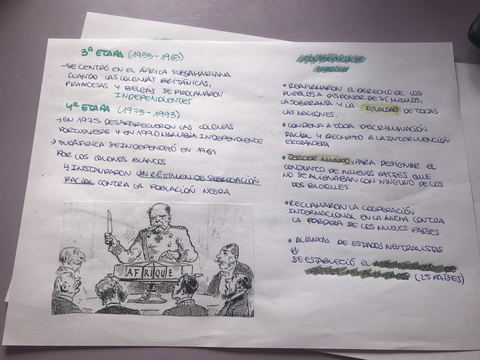 3ª ETAPA (1955-1965)
→ SE CENTRÓ EN EL ÁFRICA SUBSAHARIANA
CUANDO LAS COLONIAS BRITÁNICAS,
FRANCESAS Y BELGAS SE PROCLAMARON
INDEPENDIENTES
4ª ETAPA (1975-1993)
→ EN 1975 DESAPARECIERON LAS COLONIAS
PORTUGUESAS Y EN 1990 NAMIBIA INDEPENDIENTE
→ SUDÁFRICA SE INDEPENDIZÓ EN 1961
POR LOS COLONOS BLANCOS
INSTAURARON UN RÉGIMEN DE SEGREGACIÓN
RACIAL CONTRA LA POBLACIÓN NEGRA
AFRIQUE
• REAFIRMARON EL DERECHO DE LOS
PUEBLOS A DISPONER DE SÍ MISMOS,
LA SOBERANÍA Y LA IGUALDAD DE TODAS
LAS NACIONES.
• CONDENA A TODA DISCRIMINACIÓN
RACIAL Y RECHAZO A LA INTERVENCIÓN
EXTRANJERA
• TERCER MUNDO, PARA DESIGNAR EL
CONJUNTO DE NUEVOS PAÍSES QUE
NO SE ALINEABAN CON NINGUNO DE LOS
DOS BLOQUES
• RECLAMARON LA COOPERACIÓN
INTERNACIONAL EN LA LUCHA CONTRA
LA POBREZA DE LOS NUEVOS PAÍSES
• ALIANZAS DE ESTADOS NEUTRALISTAS
SE ESTABLECIÓ EL
(25 PAÍSES)